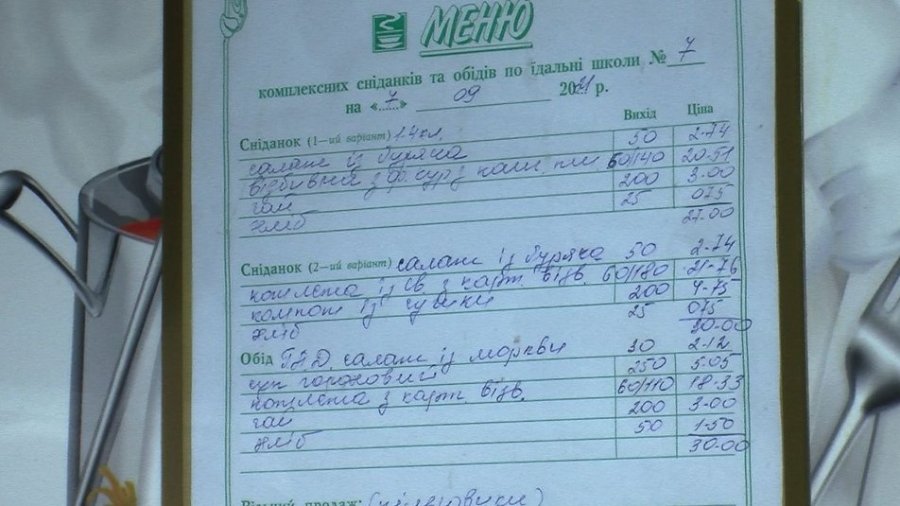 МЕНЮ
комплексних сніданків та обідів по їдальні школи № 7
на «7» 09 2021 р.
Вихід Ціна
Сніданок (1—ий варіант) 1-4 кл.
салат із буряка 50 2-74
відбивна з ф. кур з 60/140 20-51
чай 200 3-00
хліб 25 075
27-00
Сніданок (2—ий варіант) салат із буряка 50 2-74
котлета із св з карт. відв. 60/180 21-76
компот із 200 4-75
хліб 25 075
30-00
Обід ГПД. салат із моркви 30 2-12
суп гороховий 250 5-05
котлета з карт. відв. 60/110 18-33
чай 200 3-00
хліб 50 1-50
30-00
Вільний продаж: